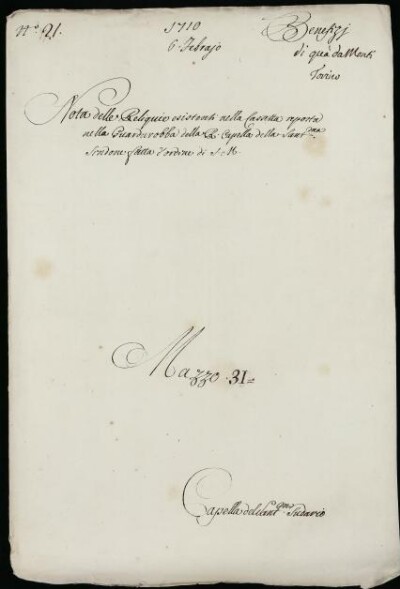 N.º 21.
1710
6. Febrajo
Benefizj
di quà da Monti
Torino
Nota delle Reliquie esistenti nella Cassetta riposta
nella Guardarobba della R. Capella della Sant.ma
Sindone fatta d'ordine di S. M.
Mazzo. 31=
Capella del Sant.mo Sudario